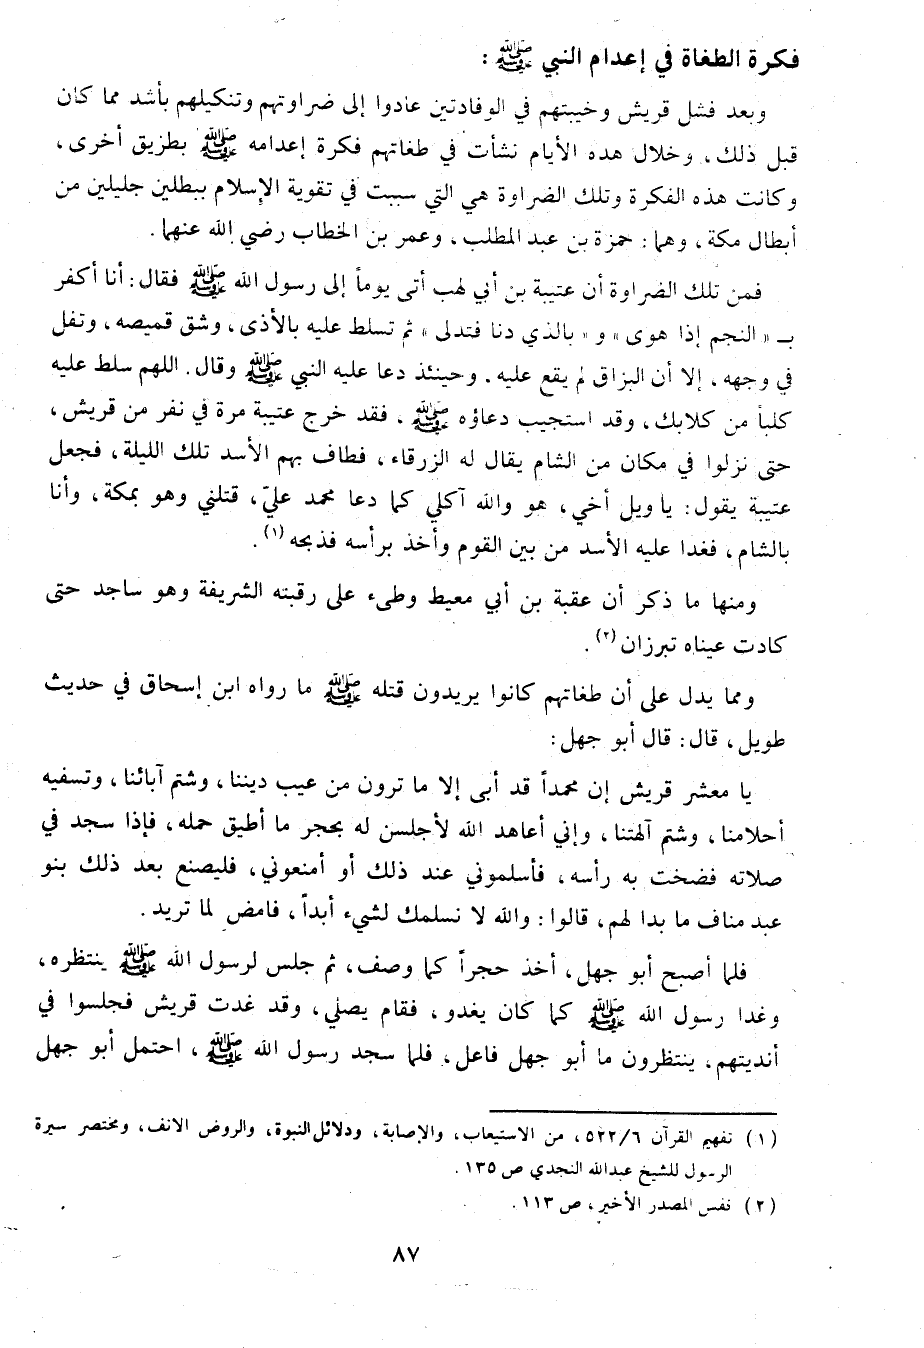 فكرة الطغاة في إعدام النبي ﷺ :
وبعد فشل قريش وخيبتهم في الوفادتين عادوا إلى ضراوتهم وتنكيلهم بأشد مما كان
قبل ذلك، وخلال هذه الأيام نشأت في طغاتهم فكرة إعدامه ﷺ بطريق أخرى،
وكانت هذه الفكرة وتلك الضراوة هي التي سببت في تقوية الإسلام ببطلين جليلين من
أبطال مكة، وهما: حمزة بن عبد المطلب، وعمر بن الخطاب رضي الله عنهما.
فمن تلك الضراوة أن عتيبة بن أبي لهب أتى يوماً إلى رسول الله ﷺ فقال: أنا أكفر
بـ «النجم إذا هوى» و «بالذي دنا فتدلى» ثم تسلط عليه بالأذى، وشق قميصه، وتفل
في وجهه، إلا أن البزاق لم يقع عليه. وحينئذ دعا عليه النبي ﷺ وقال. اللهم سلط عليه
كلباً من كلابك، وقد استجيب دعاؤه ﷺ. فقد خرج عتيبة مرة في نفر من قريش،
حتى نزلوا في مكان من الشام يقال له الزرقاء، فطاف بهم الأسد تلك الليلة، فجعل
عتيبة يقول: يا ويل أخي، هو والله آكلي كما دعا محمد عليّ، قتلني وهو بمكة، وأنا
بالشام، فغدا عليه الأسد من بين القوم وأخذ برأسه فذبحه (١).
ومنها ما ذكر أن عقبة بن أبي معيط وطىء على رقبته الشريفة وهو ساجد حتى
كادت عيناه تبرزان (٢).
ومما يدل على أن طغاتهم كانوا يريدون قتله ﷺ ما رواه ابن إسحاق في حديث
طويل، قال: قال أبو جهل:
يا معشر قريش إن محمداً قد أبى إلا ما ترون من عيب ديننا، وشتم آبائنا، وتسفيه
أحلامنا، وشتم آلهتنا، وإني أعاهد الله لأجلسن له بحجر ما أطيق حمله، فإذا سجد في
صلاته فضخت به رأسه، فأسلموني عند ذلك أو أمنعوني، فليصنع بعد ذلك بنو
عبد مناف ما بدا لهم، قالوا: والله لا نسلمك لشيء أبداً، فامض لما تريد.
فلما أصبح أبو جهل، أخذ حجراً كما وصف، ثم جلس لرسول الله ﷺ ينتظره،
وغدا رسول الله ﷺ كما كان يغدو، فقام يصلي، وقد غدت قريش فجلسوا في
أنديتهم، ينتظرون ما أبو جهل فاعل، فلما سجد رسول الله ﷺ، احتمل أبو جهل
(١) تفهيم القرآن ٥٢٢/٦، من الاستيعاب، والإصابة، ودلائل النبوة، والروض الانف، ومختصر سيرة
الرسول للشيخ عبدالله النجدي ص ١٣٥.
(٢) نفس المصدر الأخير، ص ١١٣.
٨٧